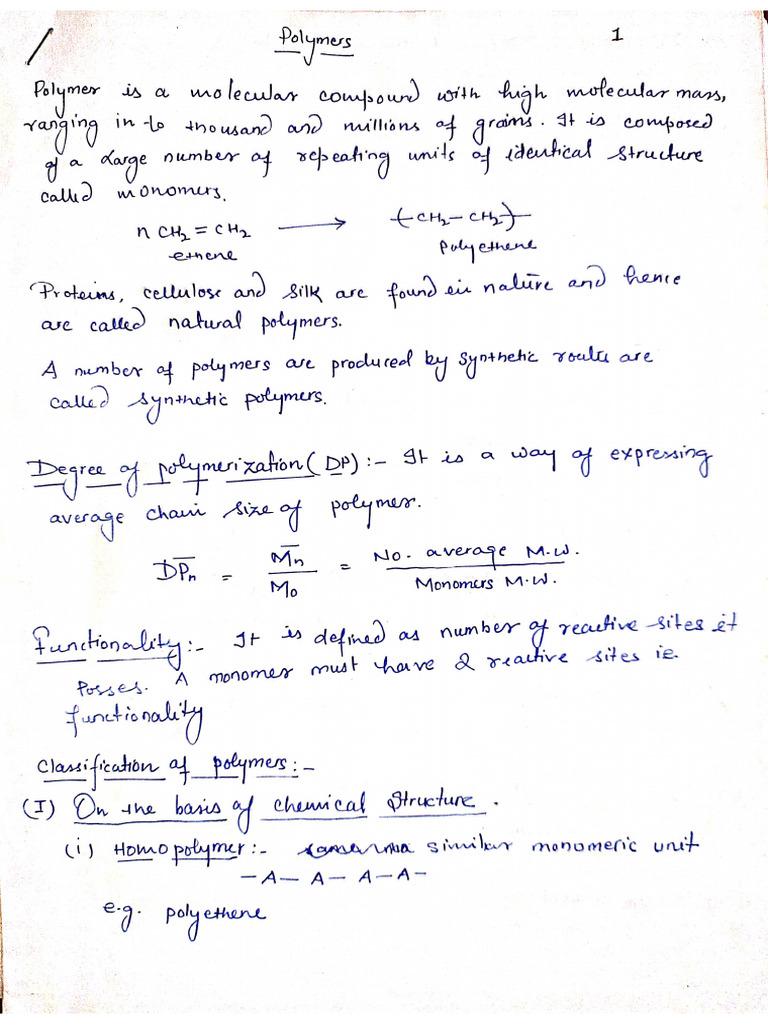 Polymers
1
Polymer is a molecular compound with high molecular mass,
ranging in to thousand and millions of grams. It is composed
of a large number of repeating units of identical structure
called monomers.
n CH₂ = CH₂ ⟶ -(CH₂ - CH₂)-
ethene Polyethene
Proteins, cellulose and silk are found in nature and hence
are called natural polymers.
A number of polymers are produced by synthetic routes are
called synthetic polymers.
Degree of polymerization (DP) :- It is a way of expressing
average chain size of polymer.
D̅P̅ₙ = M̅ₙ / M₀ = No. average M.W. / Monomers M.W.
Functionality :- It is defined as number of reactive sites it
Posses. A monomer must have 2 reactive sites ie.
functionality
Classification of polymers :-
(I) On the basis of chemical Structure.
(i) Homopolymer :- similar monomeric unit
- A - A - A - A -
e.g. polyethene